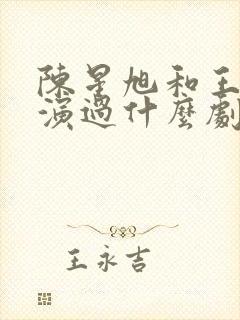 陳星旭和王
演過什麼劇
王永吉